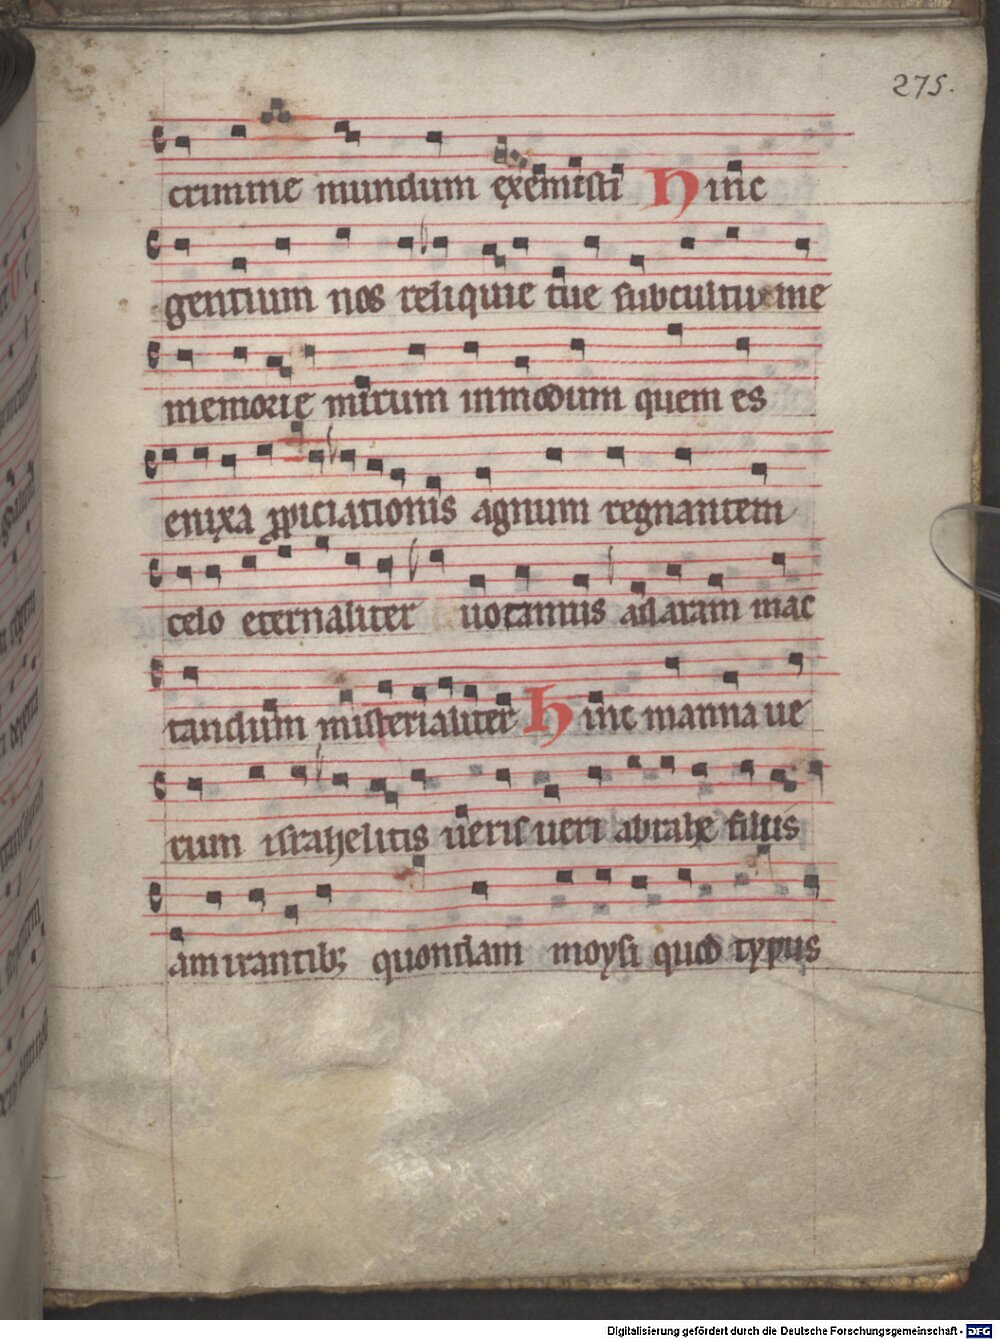 275.
crimine mundum exemisti Hinc
gentium nos reliquie tue sub cultu me
memorie mirum in modum quem es
enixa ꝓpiciationis agnum regnantem
celo eternaliter uocamus ad aram mac
tandum misterialiter Hinc manna ue
rum israhelitis ueris ueri abrahę filiis
amirantib; quondam moysi quod typus
Digitalisierung gefördert durch die Deutsche Forschungsgemeinschaft - DFG